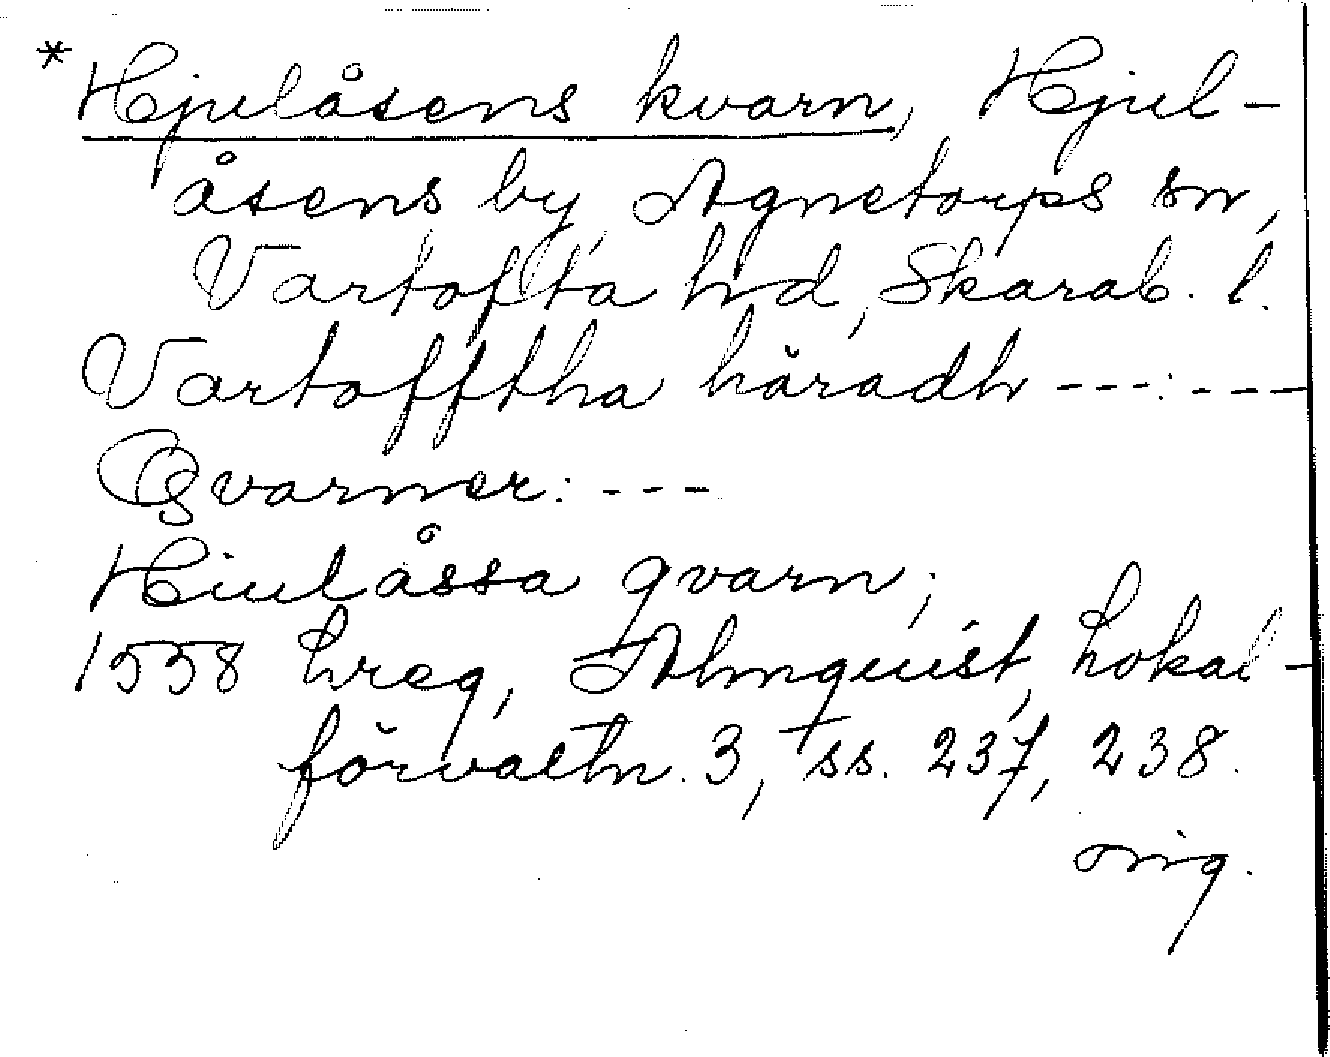 * Hjulåsens kvarn, Hjul-
åsens by, Agnetorps sn,
Vartofta hd, Skarab. l.
Vartofftha häradh ---:---
Qvarner: ---
Hiulåssa qvarn;
1558 hreg, Almquist, Lokal-
förvaltn. 3, ss. 237, 238.
orig.